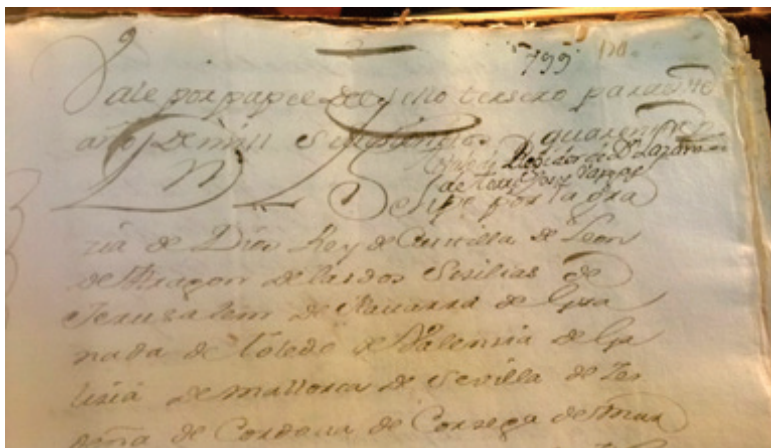 799 170
Vale por papel del sello tersero para el
año de mill setesientos y quarenta
Rexidor de Dn Lazaro
de Jose Vargas
Dn Phelipe por la gra
zia de Dios Rey de Castilla de Leon
de Aragon de las dos Sisilias de
Jerusalem de Nauarra de Gra
nada de Toledo de Valensia de Ga
lisia de Mallorca de Sevilla de Zer
deña de Cordoua de Corsega de Mur